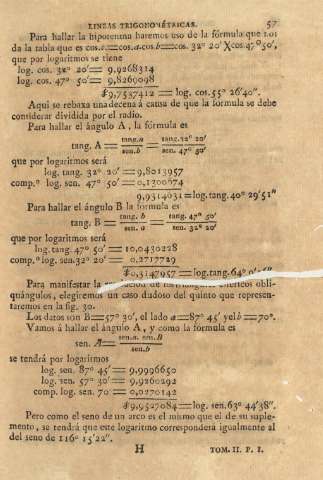 LINEAS TRIGONOMÉTRICAS. 57
Para hallar la hipotenusa haremos uso de la fórmula que nos
da la tabla que es cos.c=cos.a.cos.b=cos. 32° 20' X cos.47° 50',
que por logaritmos se tiene
log. cos. 32° 20'= 9,9268314
log. cos. 47° 50'= 9,8269098
9,7537412 = log. cos. 55° 26'40".
Aqui se rebaxa una decena á causa de que la fórmula se debe
considerar dividida por el radio.
Para hallar el ángulo A, la fórmula es
tang. A = tang.a / sen.b = tang.32° 20' / sen. 47° 50'
que por logaritmos será
log. tang. 32° 20' = 9,8013957
comp.° log. sen. 47° 50' = 0,1300674
9,9314631 = log.tang. 40° 29'51"
Para hallar el ángulo B la formula es
tang. B = tang. b / sen. a = tang. 47° 50' / sen. 32° 20'
que por logaritmos será
log. tang. 47° 50' = 10,0430228
comp.° log. sen.32° 20' = 0,2717729
0,3147957 = log.tang. 64°
Para manifestar la de los esféricos obli-
quángulos, elegiremos un caso dudoso del quinto que represen-
taremos en la fig. 30.
Los datos son B=57° 30', el lado a=87° 45' y el b=70°.
Vamos á hallar el ángulo A, y como la formula es
sen. A = sen.a. sen.B / sen.b
se tendrá por logaritmos
log. sen. 87° 45' = 9,9996650
log. sen. 57° 30' = 9,9260292
comp. log. sen. 70 = 0,0270142
9,9527084 = log. sen. 63° 44'38".
Pero como el seno de un arco es el mismo que el de su suple-
mento, se tendrá que este logaritmo corresponderá igualmente al
del seno de 116° 15'22".
H TOM. II. P. I.